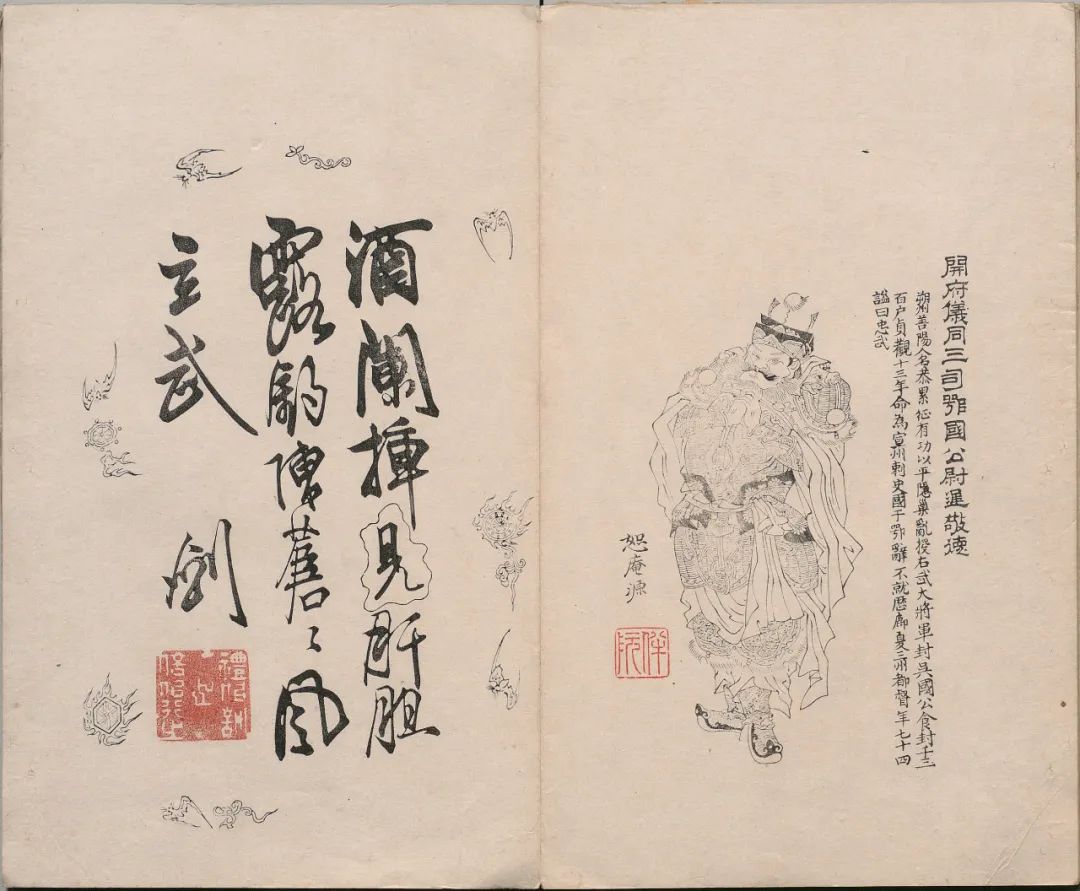 開府儀同三司鄂國公尉遲敬德
朔州善陽人名恭累征有功以平隱巢亂授右武大將軍封吳國公食封千三
百户貞觀十三年命為宣州刺史國于鄂辭不就歷鄜夏三州都督年七十四
謚曰忠武
恕庵源
伴阮
酒闌插見肝胆
露鈎陳蒼〻風
玄武
劍